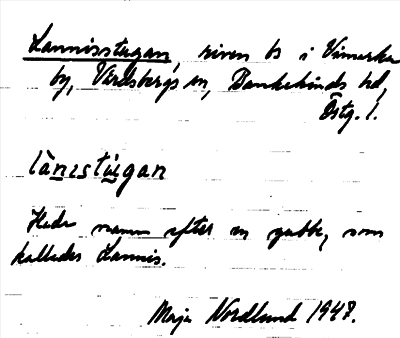 Lannisstugan, riven bs i Vimarka
by, Vårdsbergs sn, Bankekinds hd,
Östg. l.
lànıstúgan
Hade namn efter en gubbe, som
kallades Lannis.
Maja Nordlund 1947.